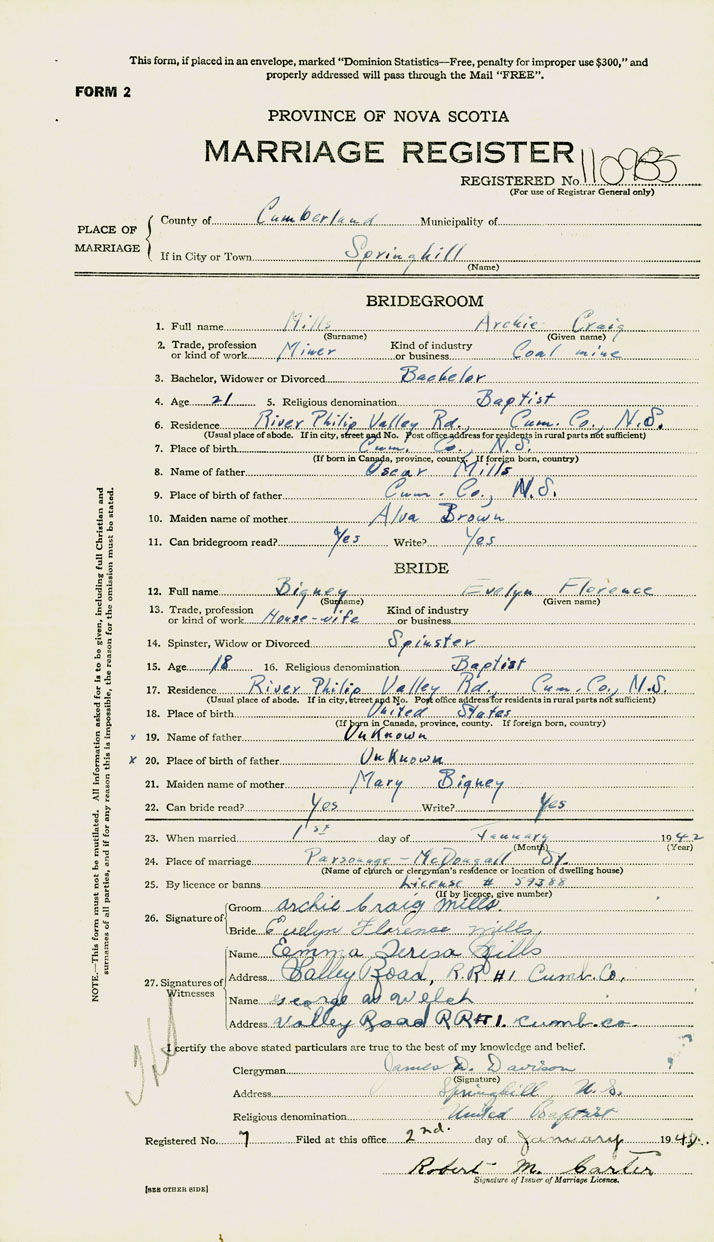 This form, if placed in an envelope, marked "Dominion Statistics—Free, penalty for improper use $300," and
properly addressed will pass through the Mail "FREE".
FORM 2
PROVINCE OF NOVA SCOTIA
MARRIAGE REGISTER
REGISTERED No. 110985
(For use of Registrar General only)
PLACE OF MARRIAGE
County of Cumberland Municipality of
If in City or Town Springhill
(Name)
BRIDEGROOM
1. Full name Mills Archie Craig
(Surname) (Given name)
2. Trade, profession or kind of work Miner Kind of industry or business Coal mine
3. Bachelor, Widower or Divorced Bachelor
4. Age 21 5. Religious denomination Baptist
6. Residence River Philip Valley Rd., Cum. Co., N.S.
(Usual place of abode. If in city, street and No. Post office address for residents in rural parts not sufficient)
7. Place of birth Cum. Co., N.S.
(If born in Canada, province, county. If foreign born, country)
8. Name of father Oscar Mills
9. Place of birth of father Cum. Co., N.S.
10. Maiden name of mother Alva Brown
11. Can bridegroom read? Yes Write? Yes
BRIDE
12. Full name Bigney Evelyn Florence
(Surname) (Given name)
13. Trade, profession or kind of work House-wife Kind of industry or business
14. Spinster, Widow or Divorced Spinster
15. Age 18 16. Religious denomination Baptist
17. Residence River Philip Valley Rd., Cum. Co., N.S.
(Usual place of abode. If in city, street and No. Post office address for residents in rural parts not sufficient)
18. Place of birth United States
(If born in Canada, province, county. If foreign born, country)
x 19. Name of father Unknown
x 20. Place of birth of father Unknown
21. Maiden name of mother Mary Bigney
22. Can bride read? Yes Write? Yes
23. When married 1st day of January 1942
(Month) (Year)
24. Place of marriage Parsonage - McDougall St.
(Name of church or clergyman's residence or location of dwelling house)
25. By licence or banns License # 59388
(If by licence, give number)
26. Signature of
Groom Archie Craig Mills.
Bride Evelyn Florence Mills,
27. Signatures of Witnesses
Name Emma Teresa Mills
Address Valley Road, R.R #1 Cumb. Co.
Name George W Welch
Address Valley Road RR#1. Cumb. co.
I certify the above stated particulars are true to the best of my knowledge and belief.
Clergyman James D. Davison
(Signature)
Address Springhill N.S.
Religious denomination United Baptist
Registered No. 7 Filed at this office 2nd. day of January 1942.
Robert M. Carter
Signature of Issuer of Marriage Licence.
[SEE OTHER SIDE]
NOTE.—This form must not be mutilated. All information asked for is to be given, including full Christian and
surnames of all parties, and if for any reason this is impossible, the reason for the omission must be stated.